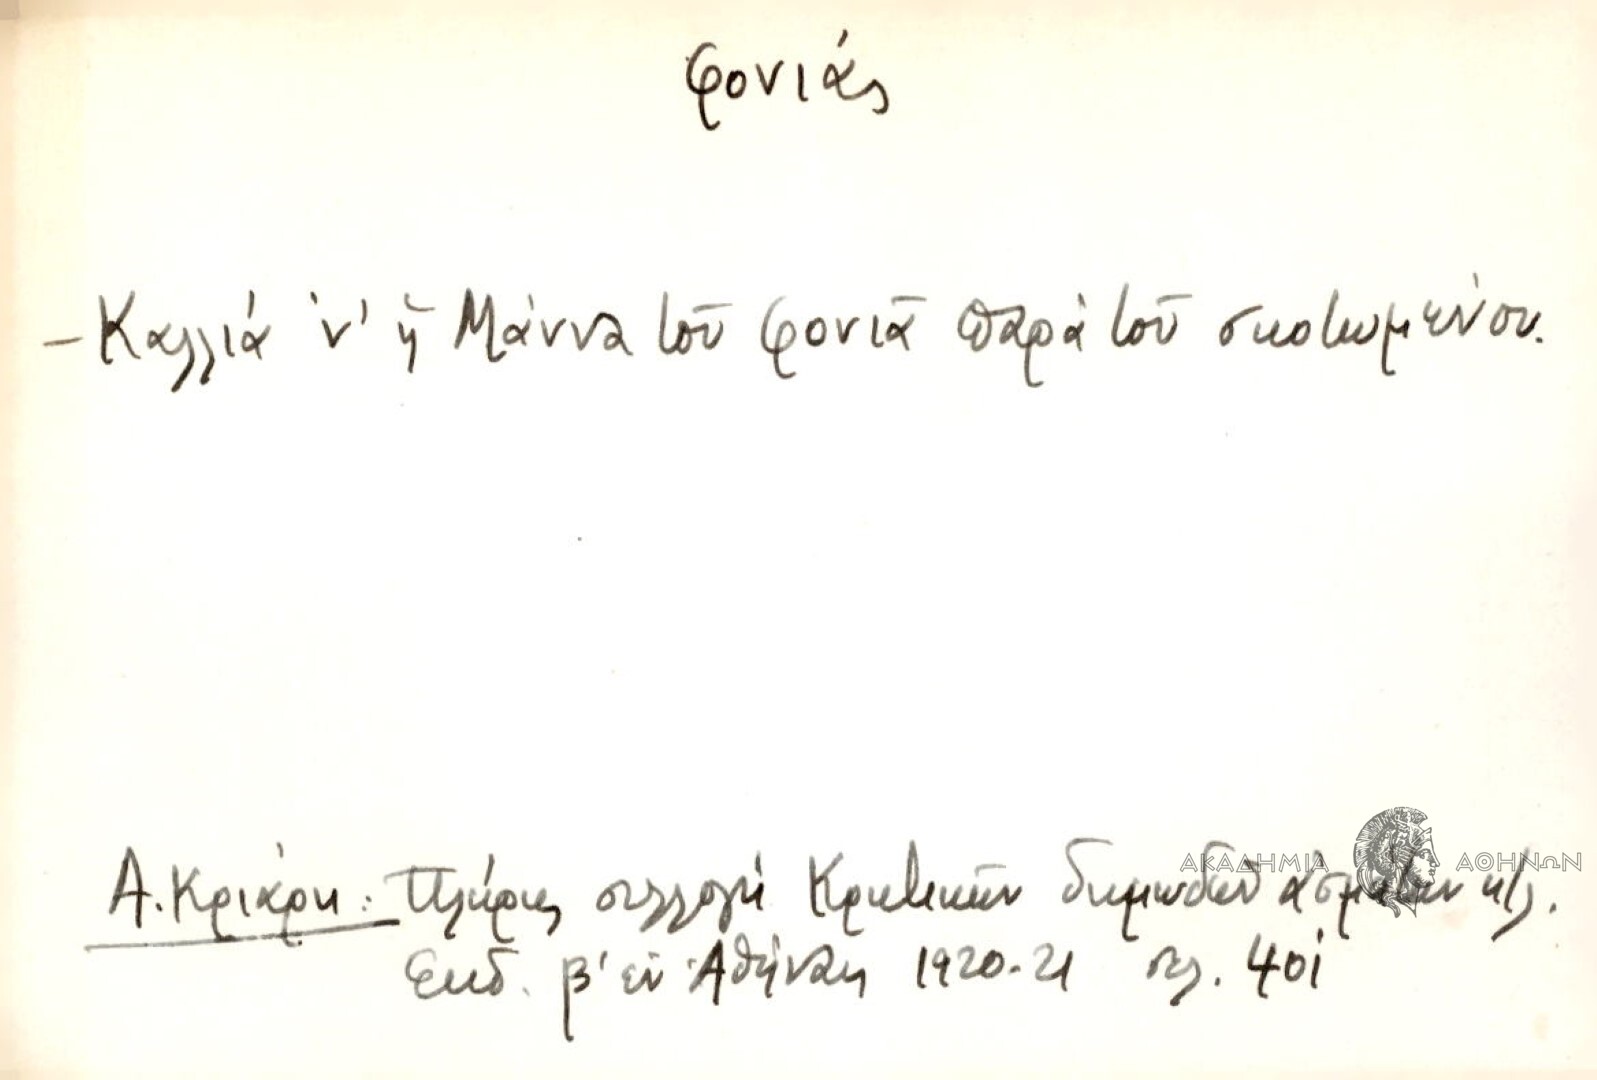 φονιάς
- Καλλιά 'ν' ἡ Μάννα τοῦ φονιᾶ παρὰ τοῦ σκοτωμένου.
Α. Κριάρη: Πλήρης συλλογή Κρητικῶν δημωδῶν ἀσμάτων κτλ.
Εκδ. β' ἐν Ἀθήναις 1920-21 σελ. 401
ΑΚΑΔΗΜΙΑ ΑΘΗΝΩΝ